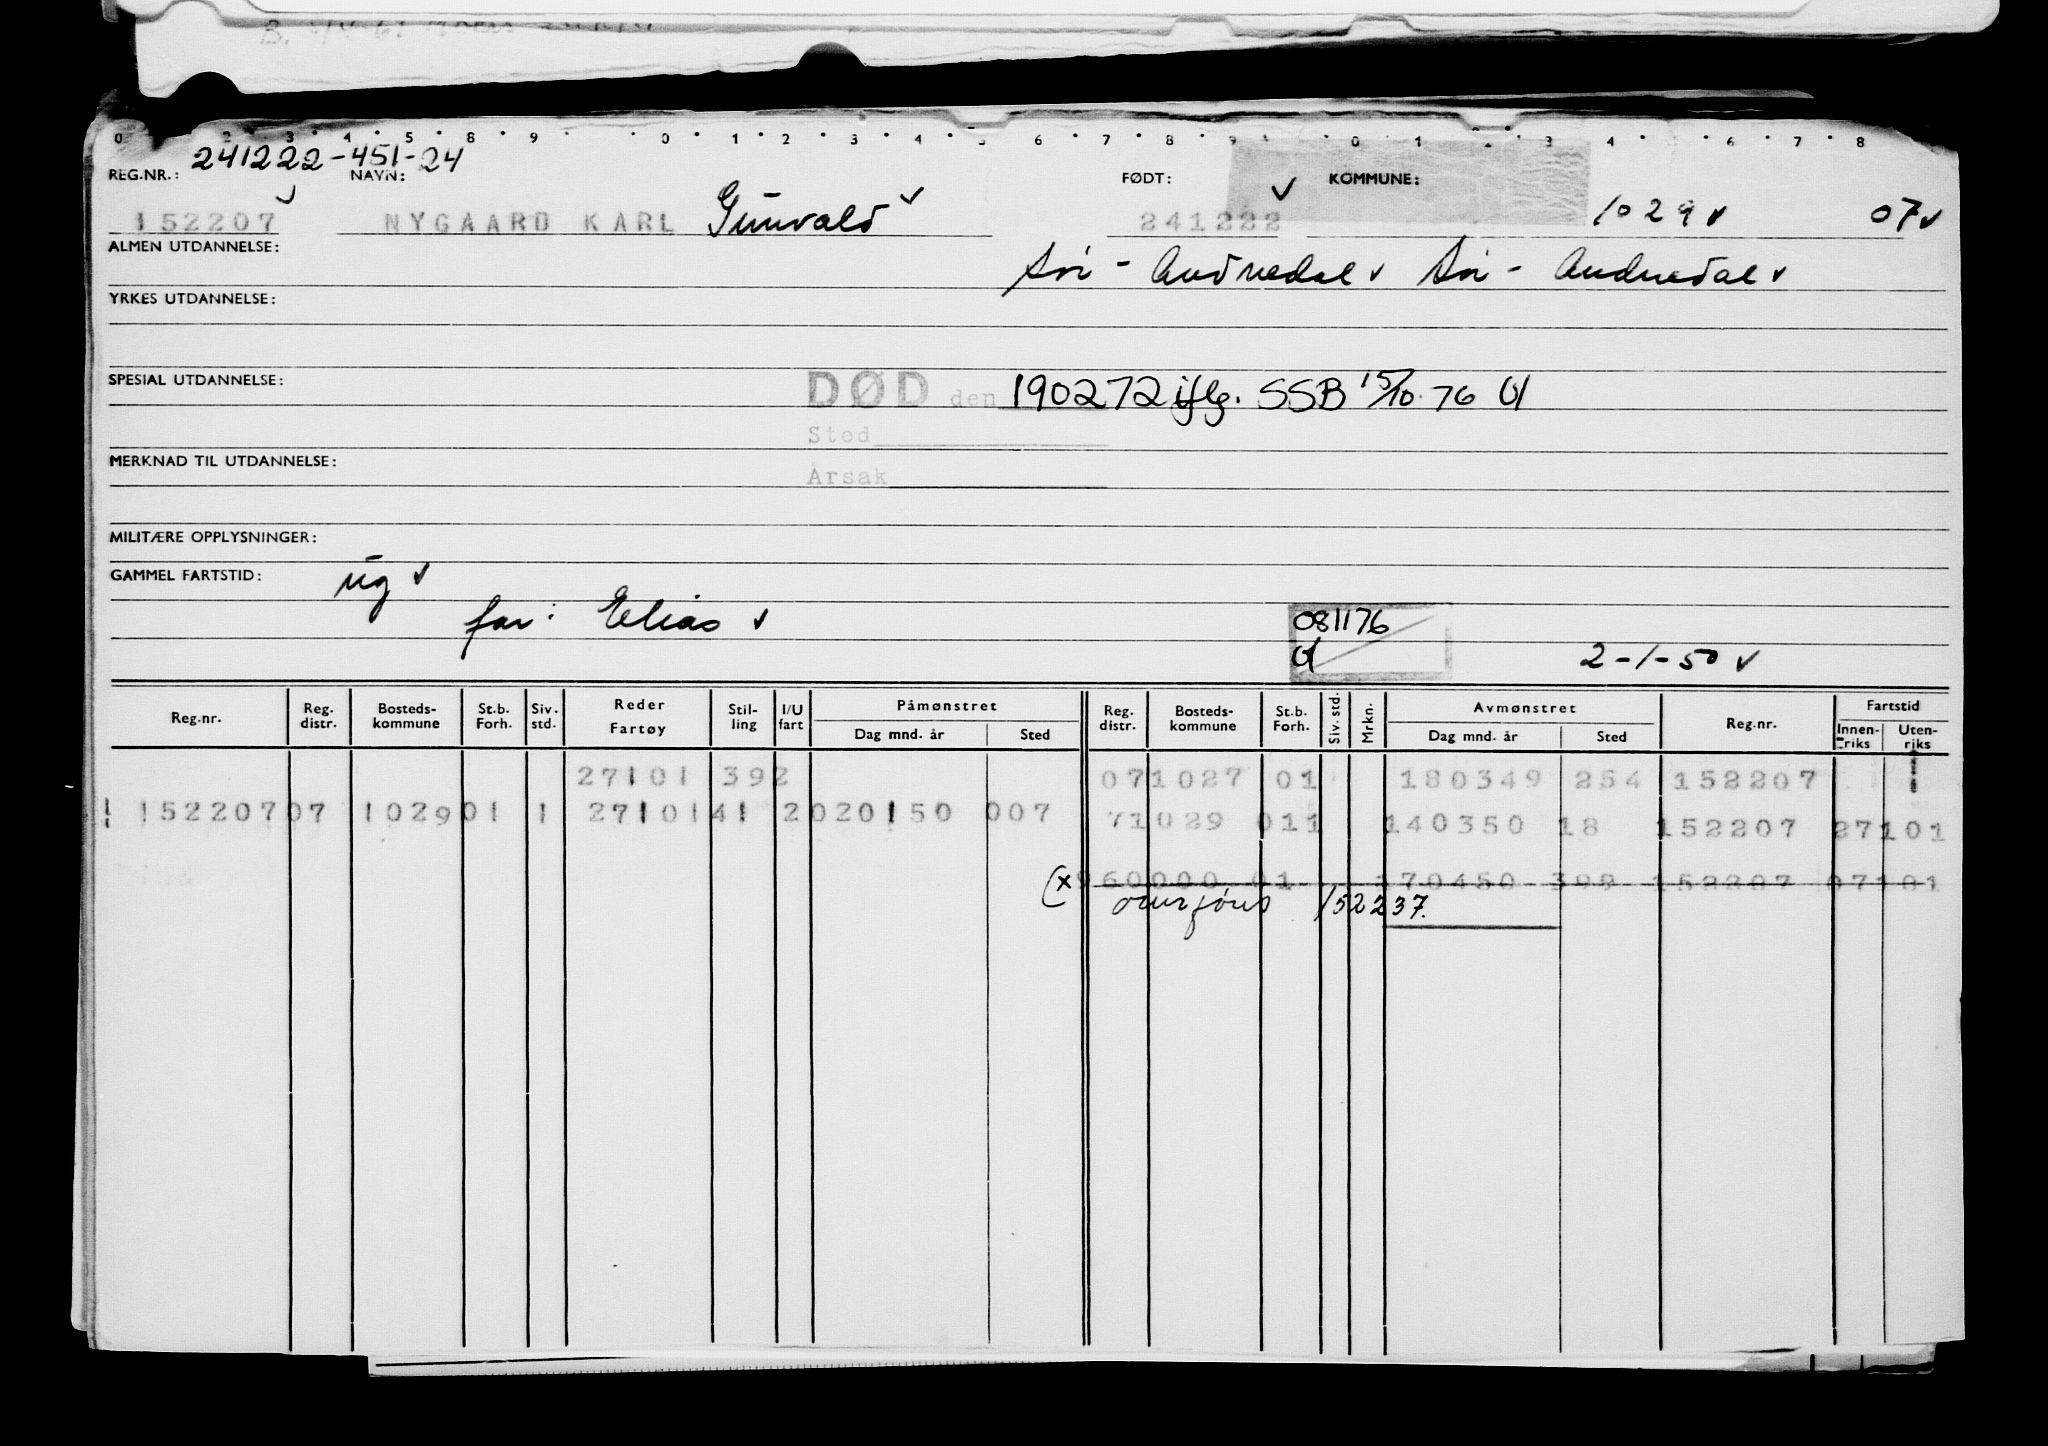 0 2 3 4 5 8 9 0 1 2 3 4 5 6 7 8 9 0 1 2 3 4 6 7 8
241222-451-24
REG.NR.: NAVN: FØDT: KOMMUNE:
152207 NYGAARD KARL Gunvald 241222 1029 07
ALMEN UTDANNELSE: Sør-Audnedal Sør-Audnedal
YRKES UTDANNELSE:
SPESIAL UTDANNELSE: DØD den 190272 iflg. SSB 15/10 76
Sted
MERKNAD TIL UTDANNELSE:
Årsak
MILITÆRE OPPLYSNINGER:
GAMMEL FARTSTID: ug
far: Elias 081176
2-1-50
Reg.nr. Reg. distr. Bosteds-kommune St.b. Forh. Siv. std. Reder Fartøy Stil-ling I/U fart Påmønstret Dag mnd. år Sted Reg. distr. Bosteds-kommune St.b. Forh. Siv. std. Mrkn. Avmønstret Dag mnd. år Sted Reg.nr. Fartstid Innen-riks Uten-riks
27101 392 071027 01 180349 254 152207 1
15220707 102901 1 2710141 2020150 007 71029 011 140350 18 152207 27101
(x 60000 01 170450 398 152207 07101
overført 152237.